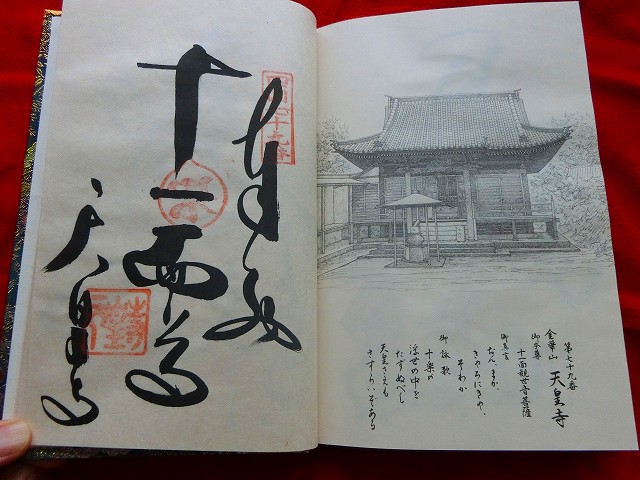 第七十九番
金華山 天皇寺
御本尊
十一面観世音菩薩
御真言
おん、まか、
きゃろにきゃ、
そわか
御詠歌
十楽の
浮世の中を
たずぬべし
天皇さえも
さすらいぞある
奉納
十一面
天皇寺